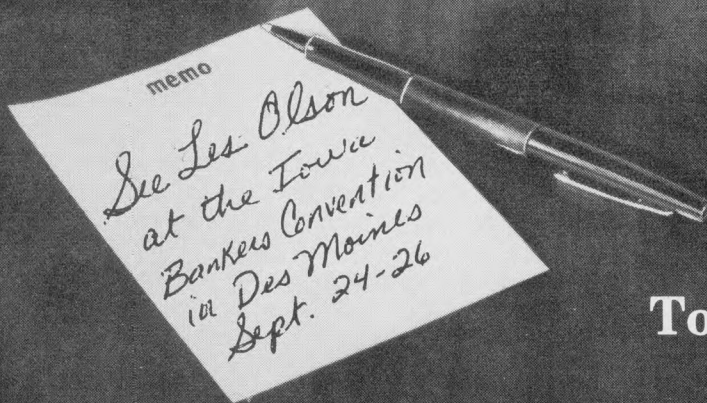 memo
See Les Olson
at the Iowa
Bankers Convention
in Des Moines
Sept. 24-26
To